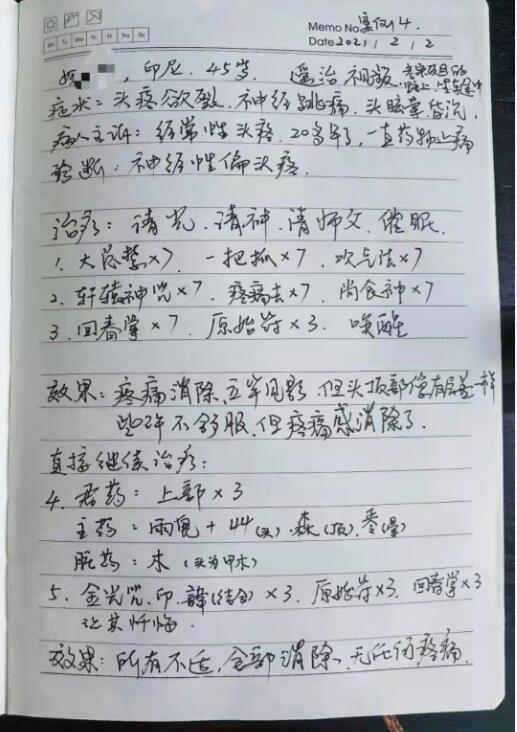 案例4.
Memo No.
Mo Tu We Th Fr Sa Su
Date 2021 / 2 / 2
, 印尼. 45岁. 遥治 视频,
症状: 头疼欲裂. 神经跳痛. 头眩晕. 昏沉,
病人主诉: 经常性头疼. 20多年了, 一直药物止痛
诊断: 神经性偏头疼.
治疗: 请光. 请神. 请师父. 催眠.
1. 大总誓×7. 一把抓×7. 吹气法×7
2. 轩辕神咒×7. 疼痛去×7. 尚食神×7
3. 回春掌×7. 原始符×3. 唤醒
效果: 疼痛消除. 立竿见影. 但头顶部像有层盖一样
些许不舒服. 但疼痛感消除了.
直接继续治疗:
4. 君药: 上部×3
主药: 雨鬼+44(头). 森(顶).
服药: 木 (头为甲木)
5. 金光咒. 印. (结合)×3. 原始符×3. 回春掌×3
让其忏悔.
效果: 所有不适, 全部消除. 无任何疼痛.